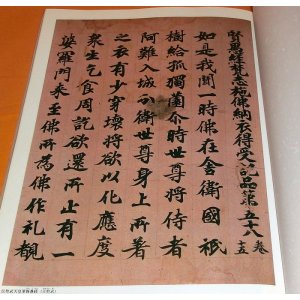 賢愚經梵志施佛納衣得受記品第五十八 卷十五
如是我聞一時佛在舍衛國祇
樹給孤獨園尒時世尊將侍者
阿難入城分衛世尊身上所著
之衣有少穿壞將欲以化應度
衆生乞食周訖欲還所止有一
婆羅門来至佛所為佛作礼觀